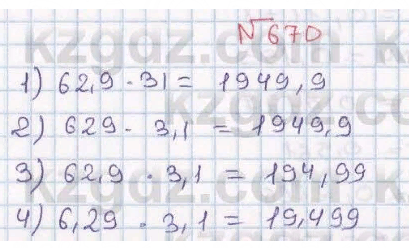 №670
1) 62,9 · 31 = 1949,9
2) 629 · 3,1 = 1949,9
3) 62,9 · 3,1 = 194,99
4) 6,29 · 3,1 = 19,499